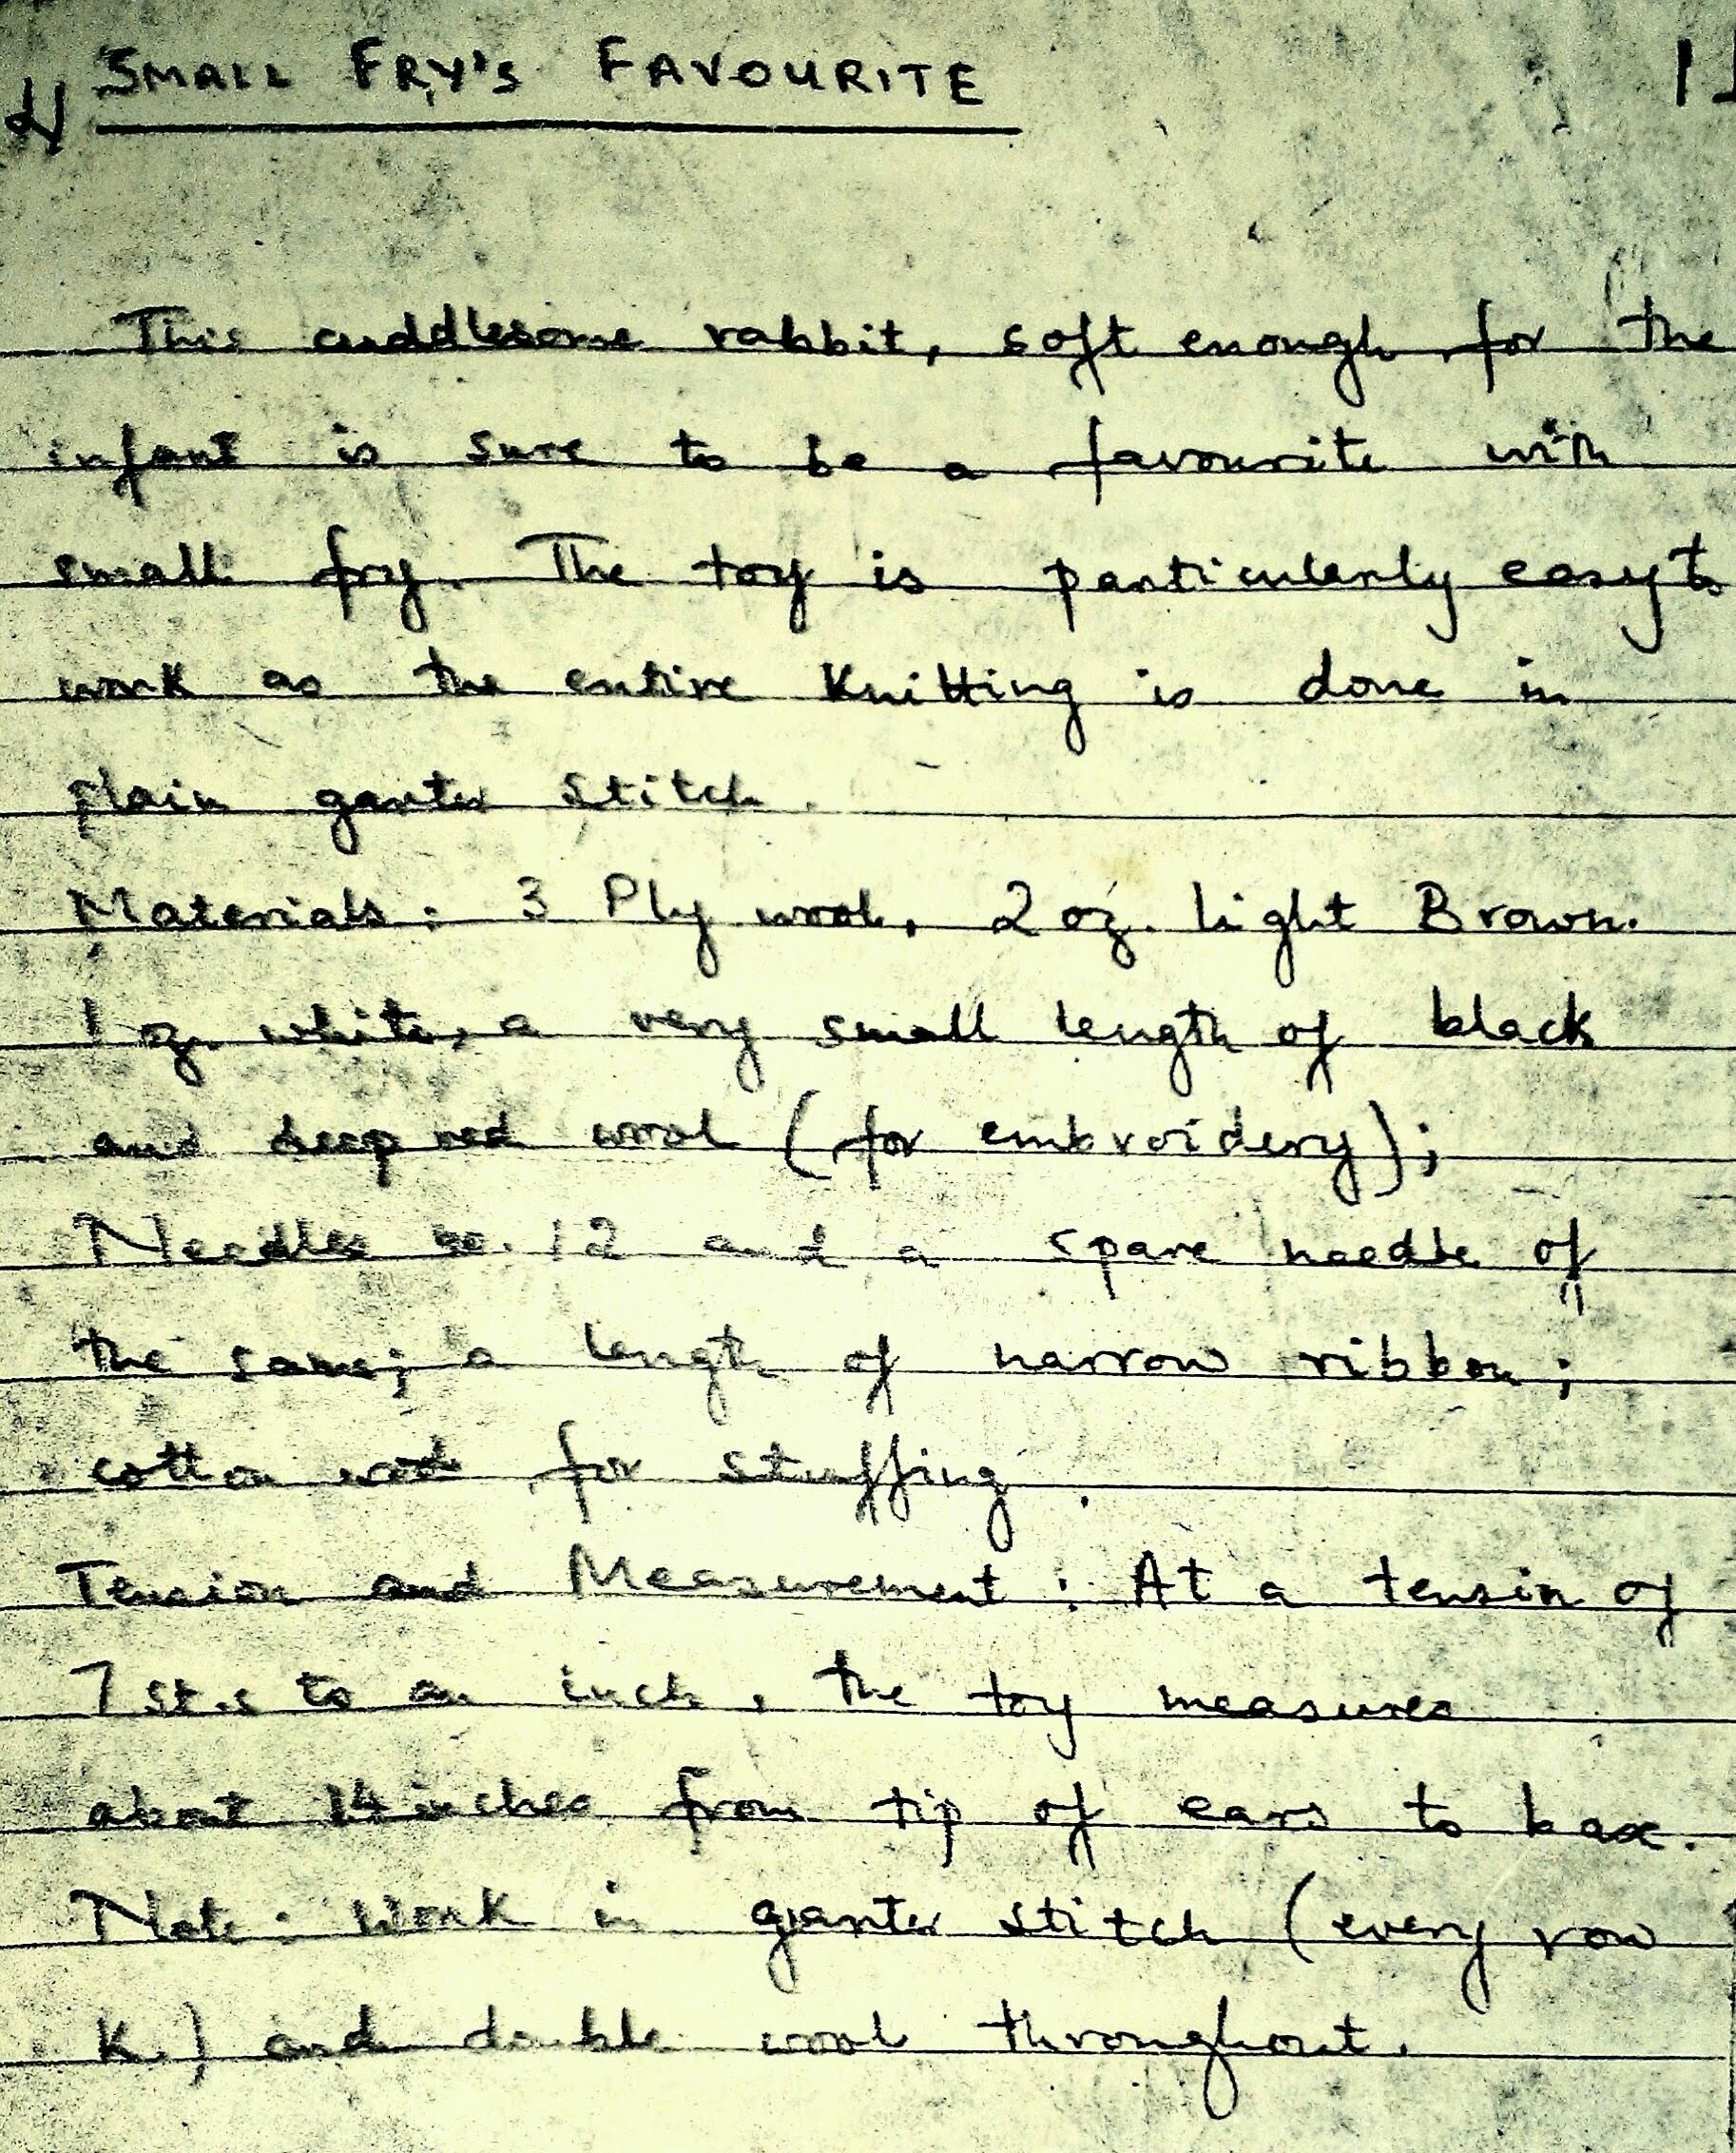 4) SMALL FRY'S FAVOURITE
This cuddlesome rabbit, soft enough for the
infant is sure to be a favourite with
small fry. The toy is particularly easy to
work as the entire Knitting is done in
plain garter stitch.
Materials: 3 Ply wool, 2 oz. light Brown.
1 oz. white, a very small length of black
and deep red wool (for embroidery);
Needles no. 12 and a spare needle of
the same; a length of narrow ribbon;
cotton wool for stuffing.
Tension and Measurement: At a tensin of
7 st.s to an inch, the toy measures
about 14 inches from tip of ears to base.
Note: Work in garter stitch (every row
K.) and double wool throughout.